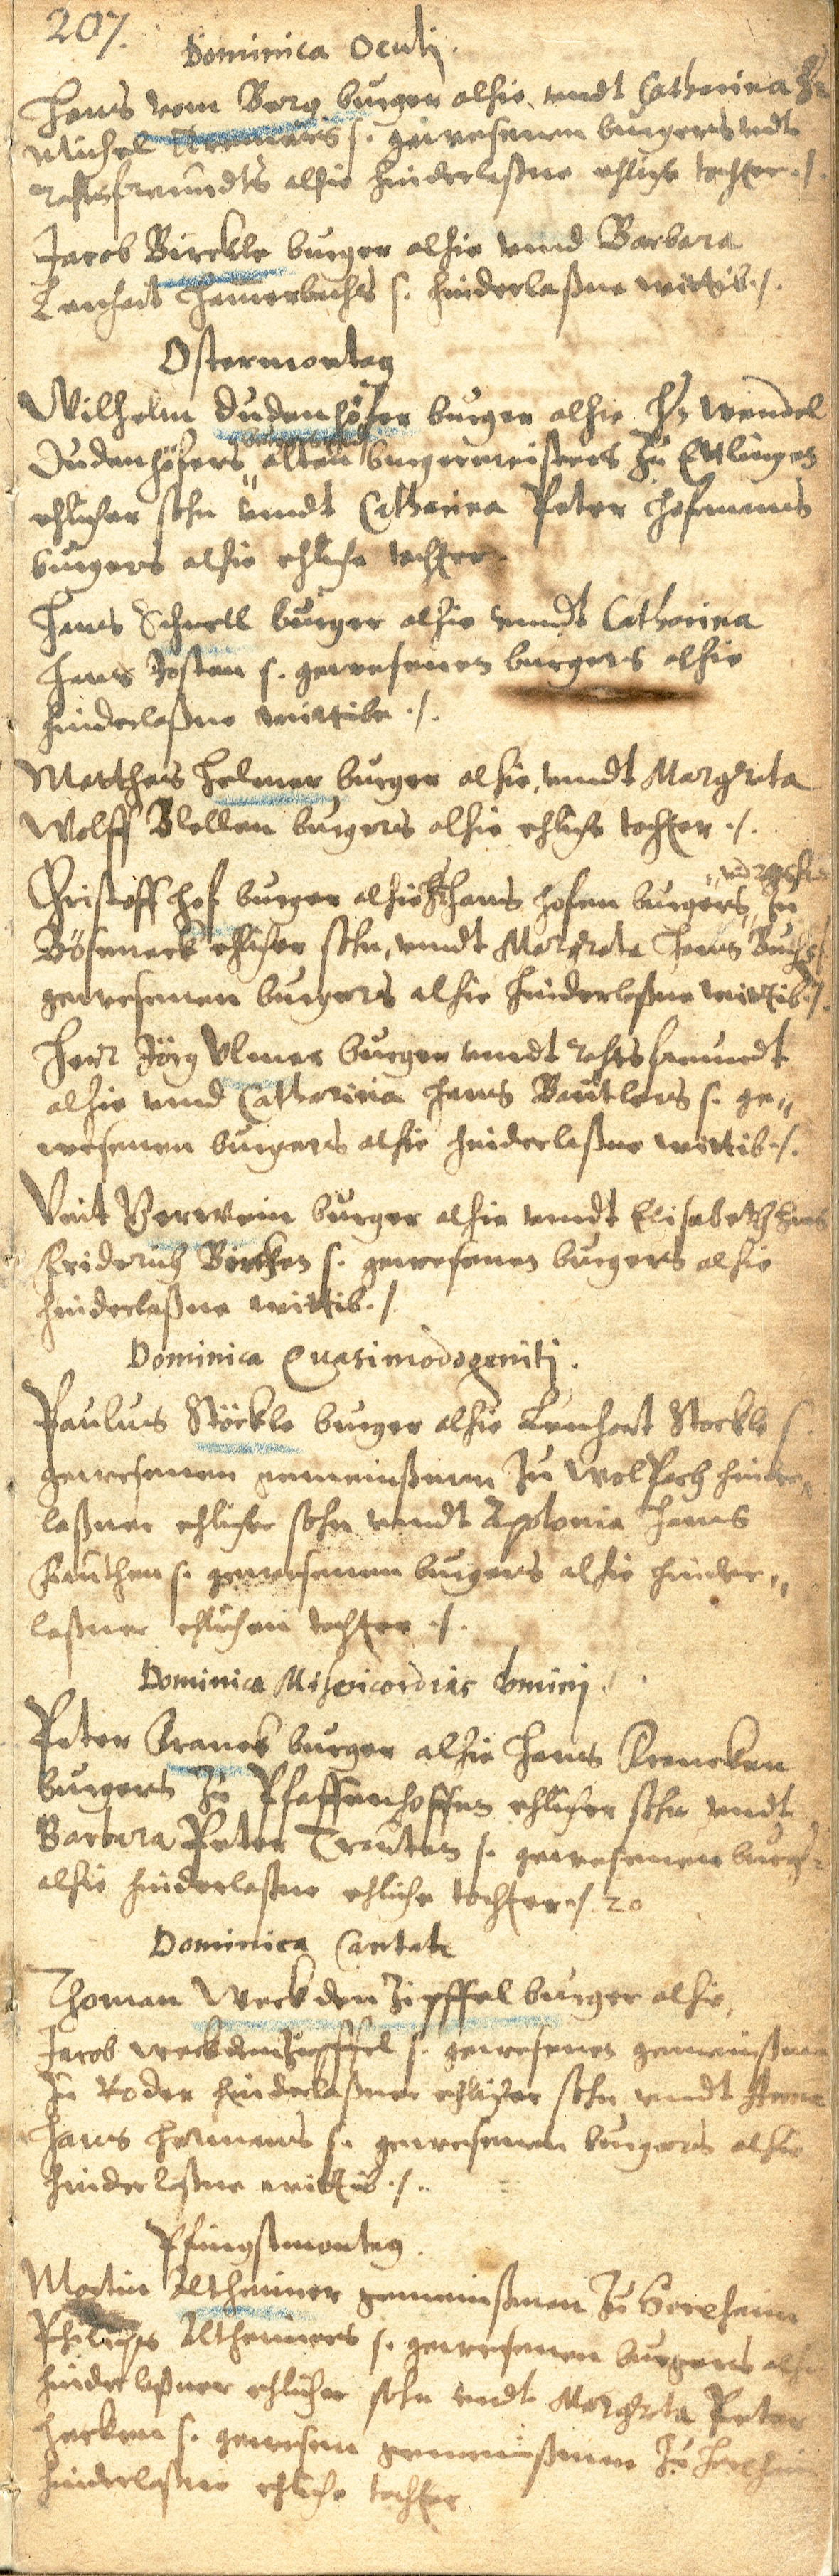 207.
Dominica Oculi.
Hans vom Berg burger alhie, vndt Catharina Hr
Michel s. gewesenen burgers vndt
rahtsfreundts alhie hinderlaßne ehliche tochter ./.
Jacob Birckle burger alhie vnnd Barbara
Lenhart Hamerbachs s. hinderlaßne wittib ./.
Ostermontag
Wilhelm Dudenhöfer burger alhie Hr Wendel
Dudenhöfers alten burgermeisters zu Ettlingen
ehlicher sohn vndt Catharina Peter Hofmanns
burgers alhie ehliche tochter.
Hans Schnell burger alhie vnndt Catharina
Hans Josten s. gewesenen burgers alhie
hinderlaßne wittibe ./.
Matthes Helmer burger alhie, vnndt Margreta
Wolff Blellen burgers alhie ehliche tochter ./.
Christoff Hof burger alhie Hans Hofen burgers zu
Böseneck ehlicher sohn, vnndt Margreta Hans Buchs
gewesenen burgers alhie hinderlaßne wittib ./.
Herr Jörg Vlmer burger vnndt rahtsfreundt
alhie vnnd Catharina Hans Bautlers s. ge„
wesenen burgers alhie hinderlaßne wittib ./.
Veit Berwein burger alhie vnndt Elisabeth Hans
Friderich Bircken s. gewesenen burgers alhie
hinderlaßne wittib ./.
Dominica Quasimodogeniti.
Paulus Stöckle burger alhie Lenhart Stockle s.
gewesenen gemeinßman zu Wolfach hinder„
laßner ehlicher sohn vnndt Apolonia Hans
Kauthen s. gewesenen burgers alhie hinder„
laßner ehlichen tochter ./.
Dominica Misericordias domini.
Peter Kranck burger alhie Hans Krencken
burgers zu Pfaffenhoffen ehlicher sohn vndt
Barbara Peter Trauten s. gewesenen burgers
alhie hinderlaßne ehliche tochter ./. 20
Dominica Cantate
Thoman Weckdenzipffel burger alhie,
Jacob Weckdenzipffel s. gewesenen gemeinßman
zu Roder hinderlaßner ehlicher sohn vnndt Anna
Hans Hermans s. gewesenen burgers alhie
hinderlaßne wittib ./.
Pfingstmontag.
Martin Altheimer gemeinßman zu Herxheim
Philips Altheimers s. gewesenen burgers alhie
hinderlaßner ehlicher sohn vndt Margreta Peter
Hecken s. gewesen gemeinßman zu Herxheim
hinderlaßne ehliche tochter